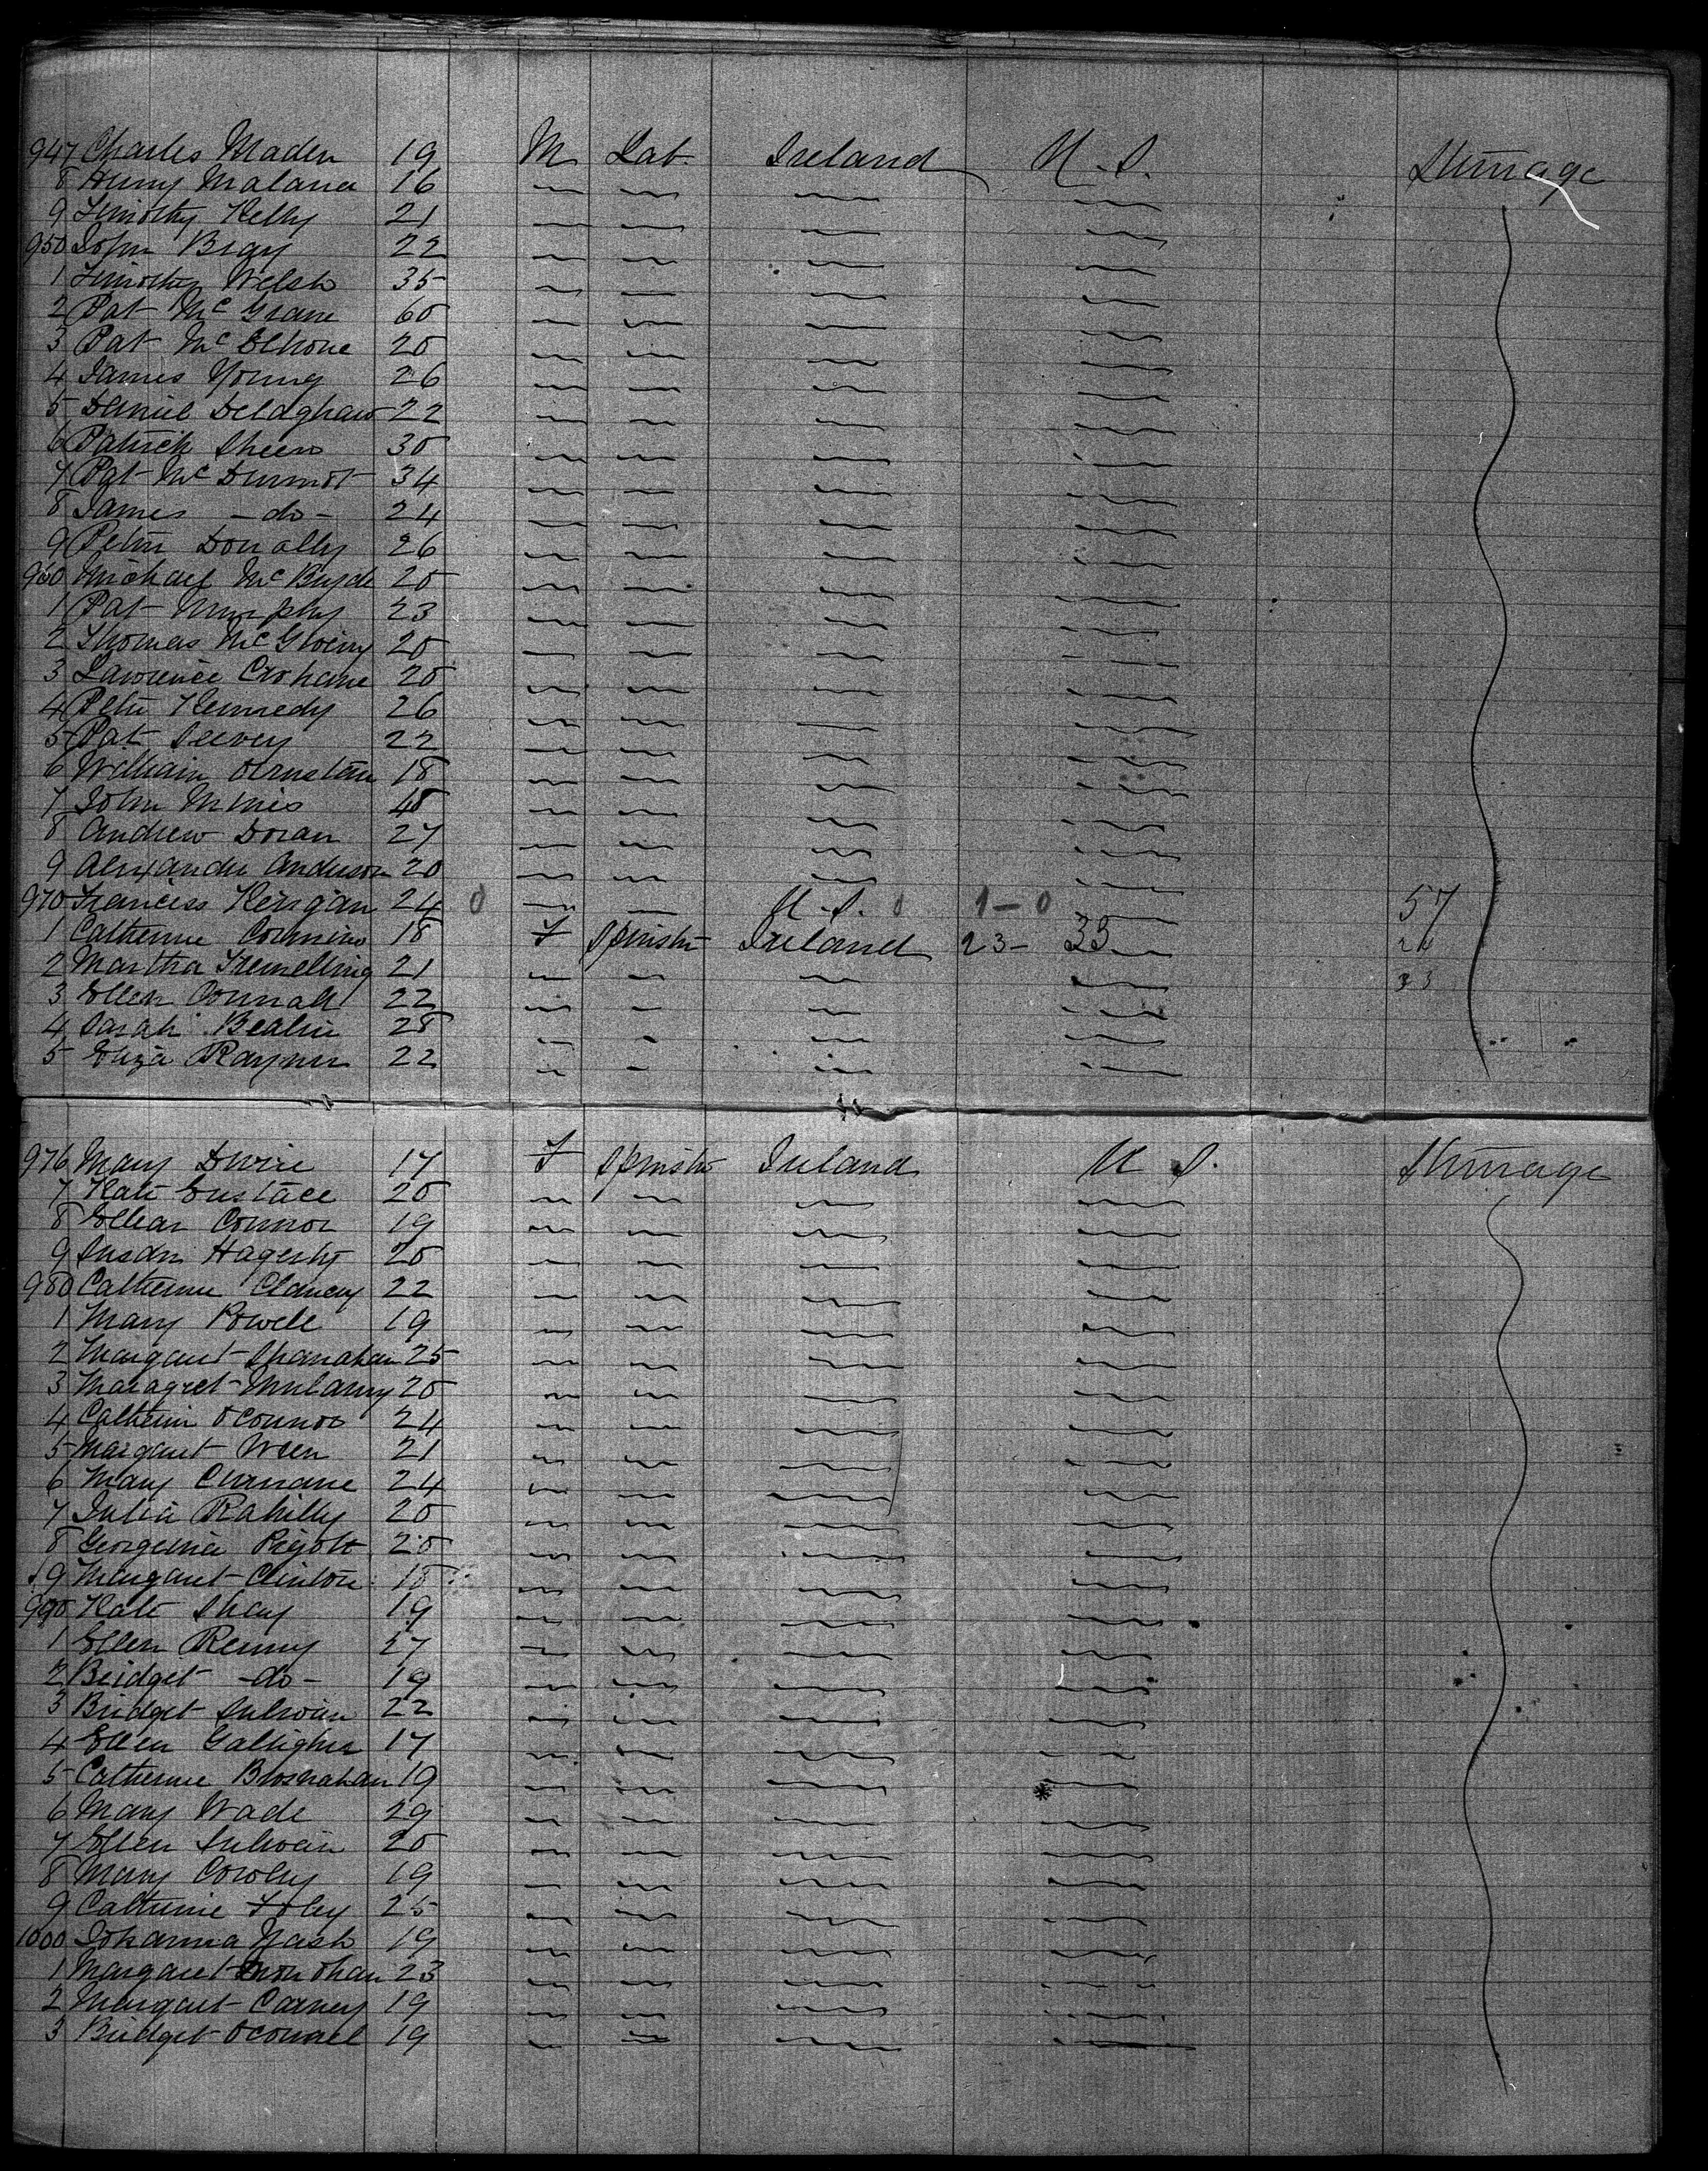 947 Charles Maden 19 M Lab. Ireland U.S. Steerage
8 Henry Malana 16
9 Timothy Kelly 21
950 John Bray 22
1 Timothy Welsh 35
2 Pat McGrane 60
3 Pat McElhone 20
4 James Young 26
5 Daniel 22
6 Patrick Sheen 30
7 Pat McDermot 34
8 James -do- 24
9 Peter Donally 26
960 Michael McBryde 20
1 Pat Murphy 23
2 Thomas 20
3 Lawrence 20
4 Peter Kennedy 26
5 Pat 22
6 William 18
7 John 40
8 Andrew Doran 27
9 Alexander Anderson 20
970 Franciss Keirgan 24 0 U.S. 0 1-0 57
1 Catherine 18 F Spinster Ireland 23- 33
2 Martha 21
3 Ellen Connall 22
4 Sarah 28
5 Eliza Rayner 22
976 Mary Dwire 17 F Spinster Ireland U S. Steerage
7 Kate Eustace 20
8 Ellean Connor 19
9 Susan Hagerty 20
980 Catherine Clancy 22
1 Mary Powell 19
2 Margaret Shanahan 25
3 Maragret Mulamy 20
4 Catherin OConnor 24
5 Margaret 21
6 Mary Currane 24
7 Julia Rahilly 20
8 Georgeina Pigott 20
9 Margaret Clinton 18
990 Kate Shay 19
1 Ellen Renny
2 Bridget -do- 19
3 Bridget Sulivan 22
4 Ellen Galligher 17
5 Catherine Brosnahan 19
6 Mary Wade 29
7 Ellen Sulivan 20
8 Mary Cowley 19
9 Catherine Foley 25
1000 Johanna Nash 19
1 Margaret 23
2 Margaret Carney 19
3 Bridget OConnel 19